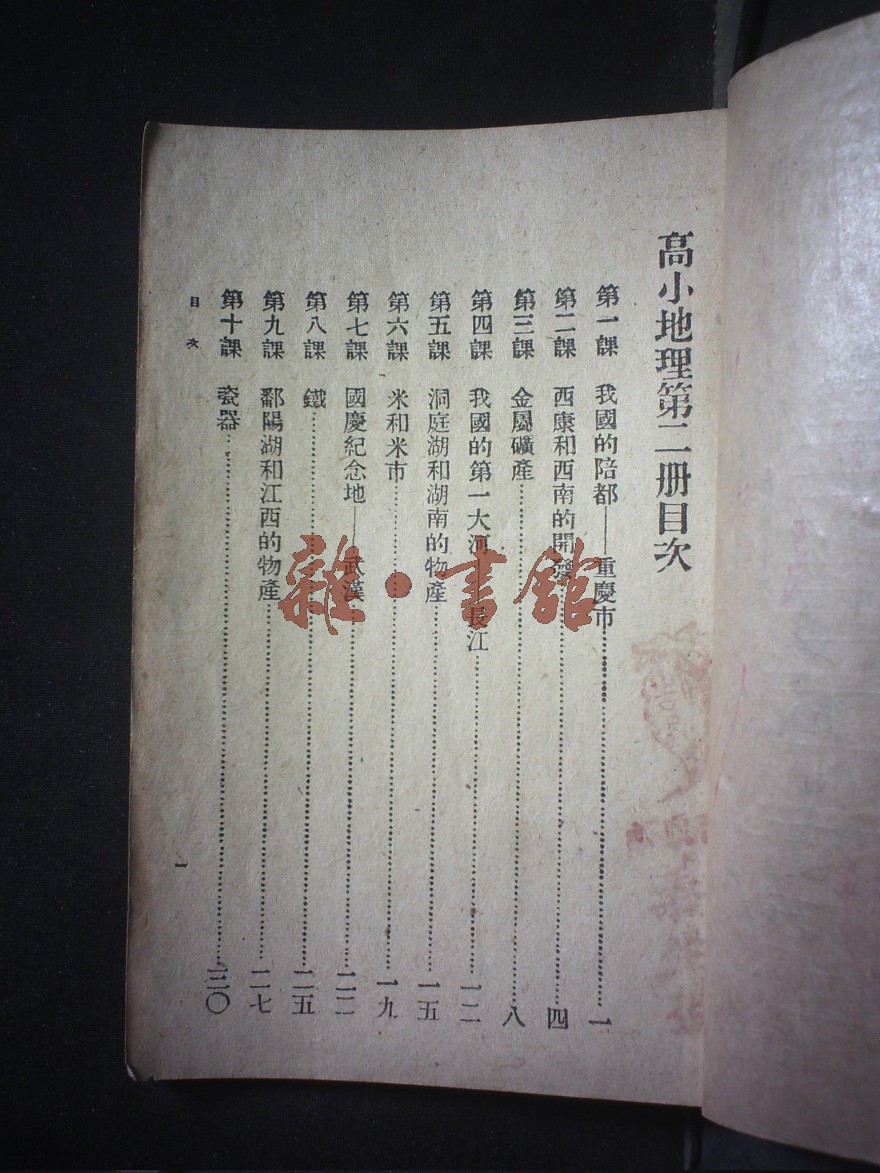 高小地理第二册目次
第一課 我國的陪都——重慶市……一
第二課 西康和西南的開發……四
第三課 金屬礦產……八
第四課 我國的第一大河 長江……一二
第五課 洞庭湖和湖南的物產……一五
第六課 米和米市……一九
第七課 國慶紀念地——武漢……二二
第八課 鐵……二五
第九課 鄱陽湖和江西的物產……二七
第十課 瓷器……三〇
目次
一
雜·書館